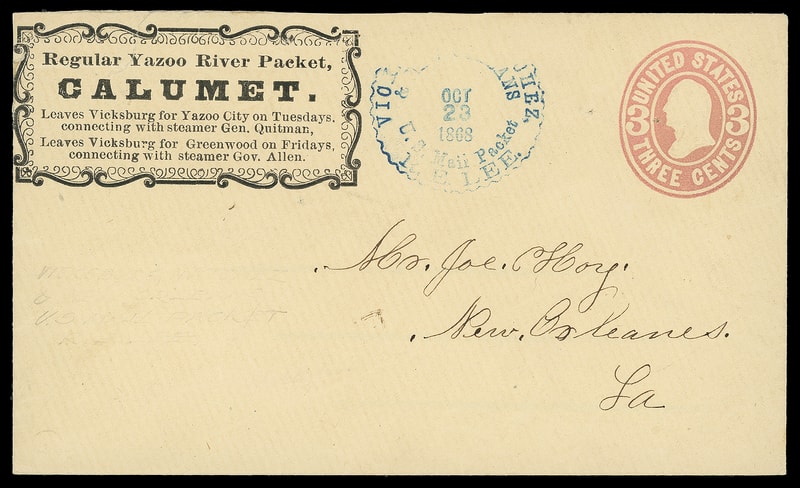 Regular Yazoo River Packet,
CALUMET.
Leaves Vicksburg for Yazoo City on Tuesdays,
connecting with steamer Gen. Quitman,
Leaves Vicksburg for Greenwood on Fridays,
connecting with steamer Gov. Allen.
OCT
23
1868
U.S. Mail Packet
LEE.
UNITED STATES
3 3
THREE CENTS
Mr. Joe. Hoy.
New. Orleanes.
La
U.S. MAIL PACKET